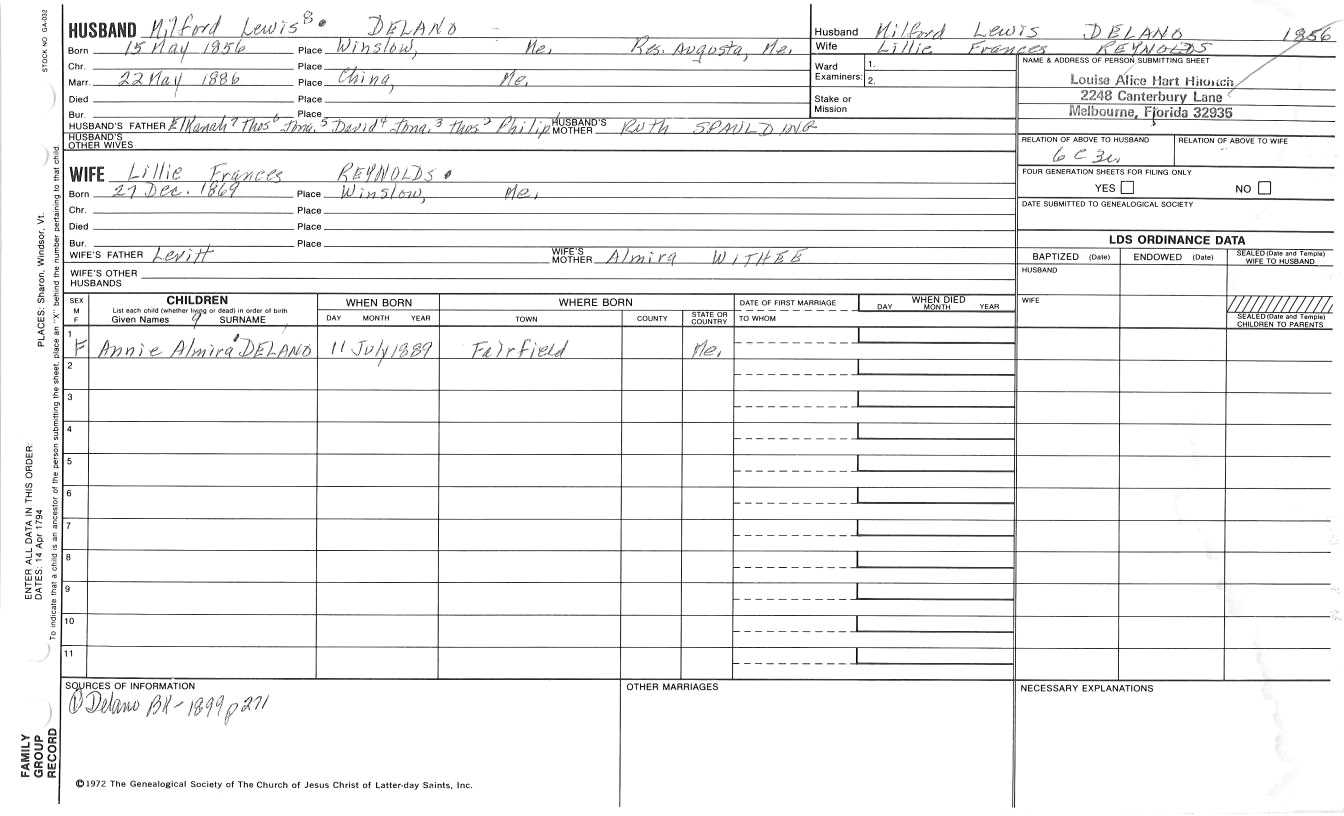 STOCK NO. GA-032
HUSBAND Milford Lewis⁸ DELANO
Born 15 May 1856 Place Winslow, Me. Res. Augusta, Me.
Chr. Place
Marr. 22 May 1886 Place China, Me.
Died Place
Bur. Place
HUSBAND'S FATHER Elkanah⁷ Thos⁶ Jona.⁵ David⁴ Jona.³ Thos² Philip HUSBAND'S MOTHER RUTH SPAULDING
HUSBAND'S OTHER WIVES
Husband Milford Lewis DELANO 1856
Wife Lillie Frances REYNOLDS
Ward 1.
Examiners: 2.
Stake or Mission
NAME & ADDRESS OF PERSON SUBMITTING SHEET
Louise Alice Hart
2248 Canterbury Lane
Melbourne, Florida 32935
RELATION OF ABOVE TO HUSBAND RELATION OF ABOVE TO WIFE
6 C 3
FOUR GENERATION SHEETS FOR FILING ONLY
YES NO
DATE SUBMITTED TO GENEALOGICAL SOCIETY
WIFE Lillie Frances REYNOLDS
Born 27 Dec. 1869 Place Winslow, Me.
Chr. Place
Died Place
Bur. Place
WIFE'S FATHER Levitt WIFE'S MOTHER Almira WITHEE
WIFE'S OTHER HUSBANDS
LDS ORDINANCE DATA
BAPTIZED (Date) ENDOWED (Date) SEALED (Date and Temple) WIFE TO HUSBAND
HUSBAND
WIFE
SEALED (Date and Temple) CHILDREN TO PARENTS
SEX M F CHILDREN WHEN BORN WHERE BORN DATE OF FIRST MARRIAGE WHEN DIED
List each child (whether living or dead) in order of birth
Given Names 9 SURNAME DAY MONTH YEAR TOWN COUNTY STATE OR COUNTRY TO WHOM DAY MONTH YEAR
1 F Annie Almira DELANO 11 July 1889 Fairfield Me.
2
3
4
5
6
7
8
9
10
11
SOURCES OF INFORMATION OTHER MARRIAGES NECESSARY EXPLANATIONS
① Delano BK - 1899 p 271
©1972 The Genealogical Society of The Church of Jesus Christ of Latter-day Saints, Inc.
FAMILY GROUP RECORD
ENTER ALL DATA IN THIS ORDER:
DATES: 14 Apr 1794 PLACES: Sharon, Windsor, Vt.
To indicate that a child is an ancestor of the person submitting the sheet, place an "X" behind the number pertaining to that child.